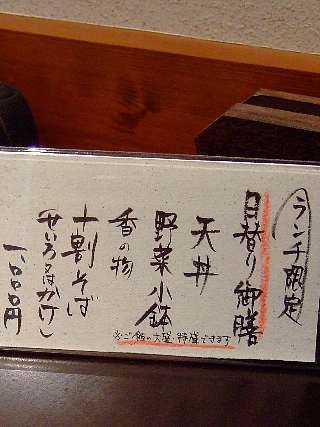 ランチ限定
日替り御膳
天丼
野菜小鉢
香の物
十割そば
(せいろ又はかけ)
一、〇〇〇円
※ご飯の大盛・特盛できます